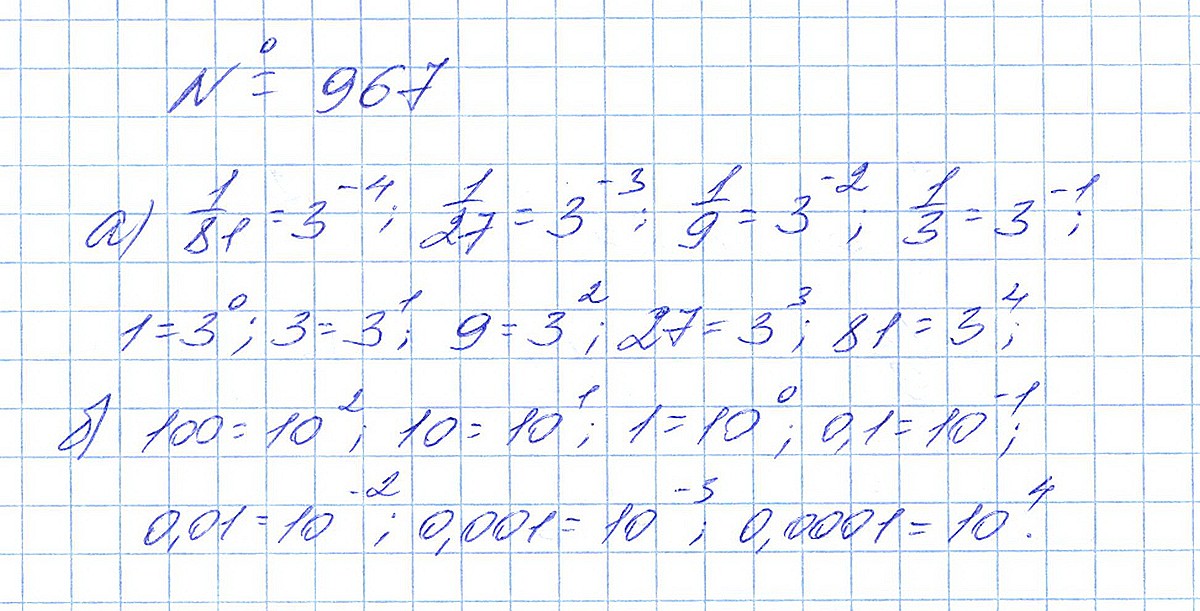 № 967
а) 1/81 = 3⁻⁴; 1/27 = 3⁻³; 1/9 = 3⁻²; 1/3 = 3⁻¹;
1 = 3⁰; 3 = 3¹; 9 = 3²; 27 = 3³; 81 = 3⁴;
б) 100 = 10²; 10 = 10¹; 1 = 10⁰; 0,1 = 10⁻¹;
0,01 = 10⁻²; 0,001 = 10⁻³; 0,0001 = 10⁴.